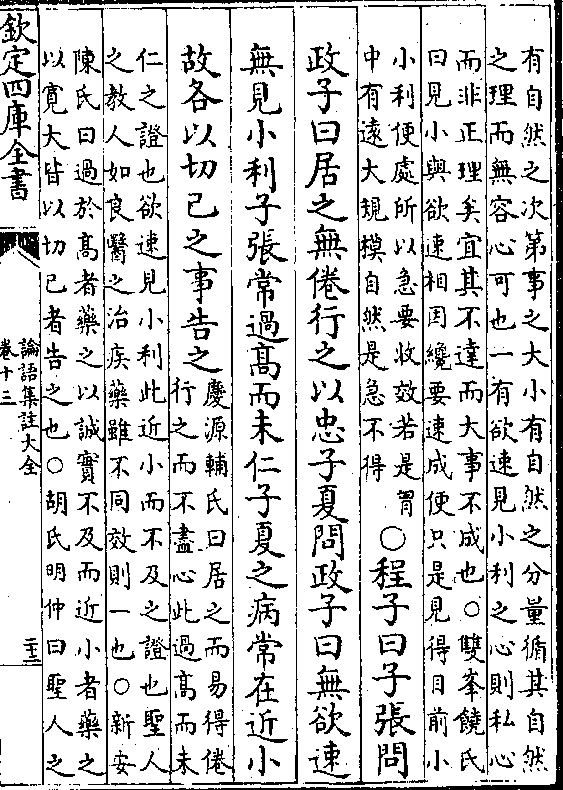 有自然之次第事之大小有自然之分量循其自然
之理而無容心可也一有欲速見小利之心則私心
而非正理矣宜其不達而大事不成也○雙峯饒氏
曰見小與欲速相因纔要速成便只是見得目前小
小利便處所以急要收效若是胷
中有遠大規模自然是急不得
○程子曰子張問
政子曰居之無倦行之以忠子夏問政子曰無欲速
無見小利子張常過髙而未仁子夏之病常在近小
故各以切己之事告之
慶源輔氏曰居之而易得倦
行之而不盡心此過髙而未
仁之證也欲速見小利此近小而不及之證也聖人
之教人如良醫之治疾藥雖不同效則一也○新安
陳氏曰過於髙者藥之以誠實不及而近小者藥之
以寛大皆以切己者告之也○胡氏明仲曰聖人之
欽定四庫全書
論語集註大全
卷十三
二十三